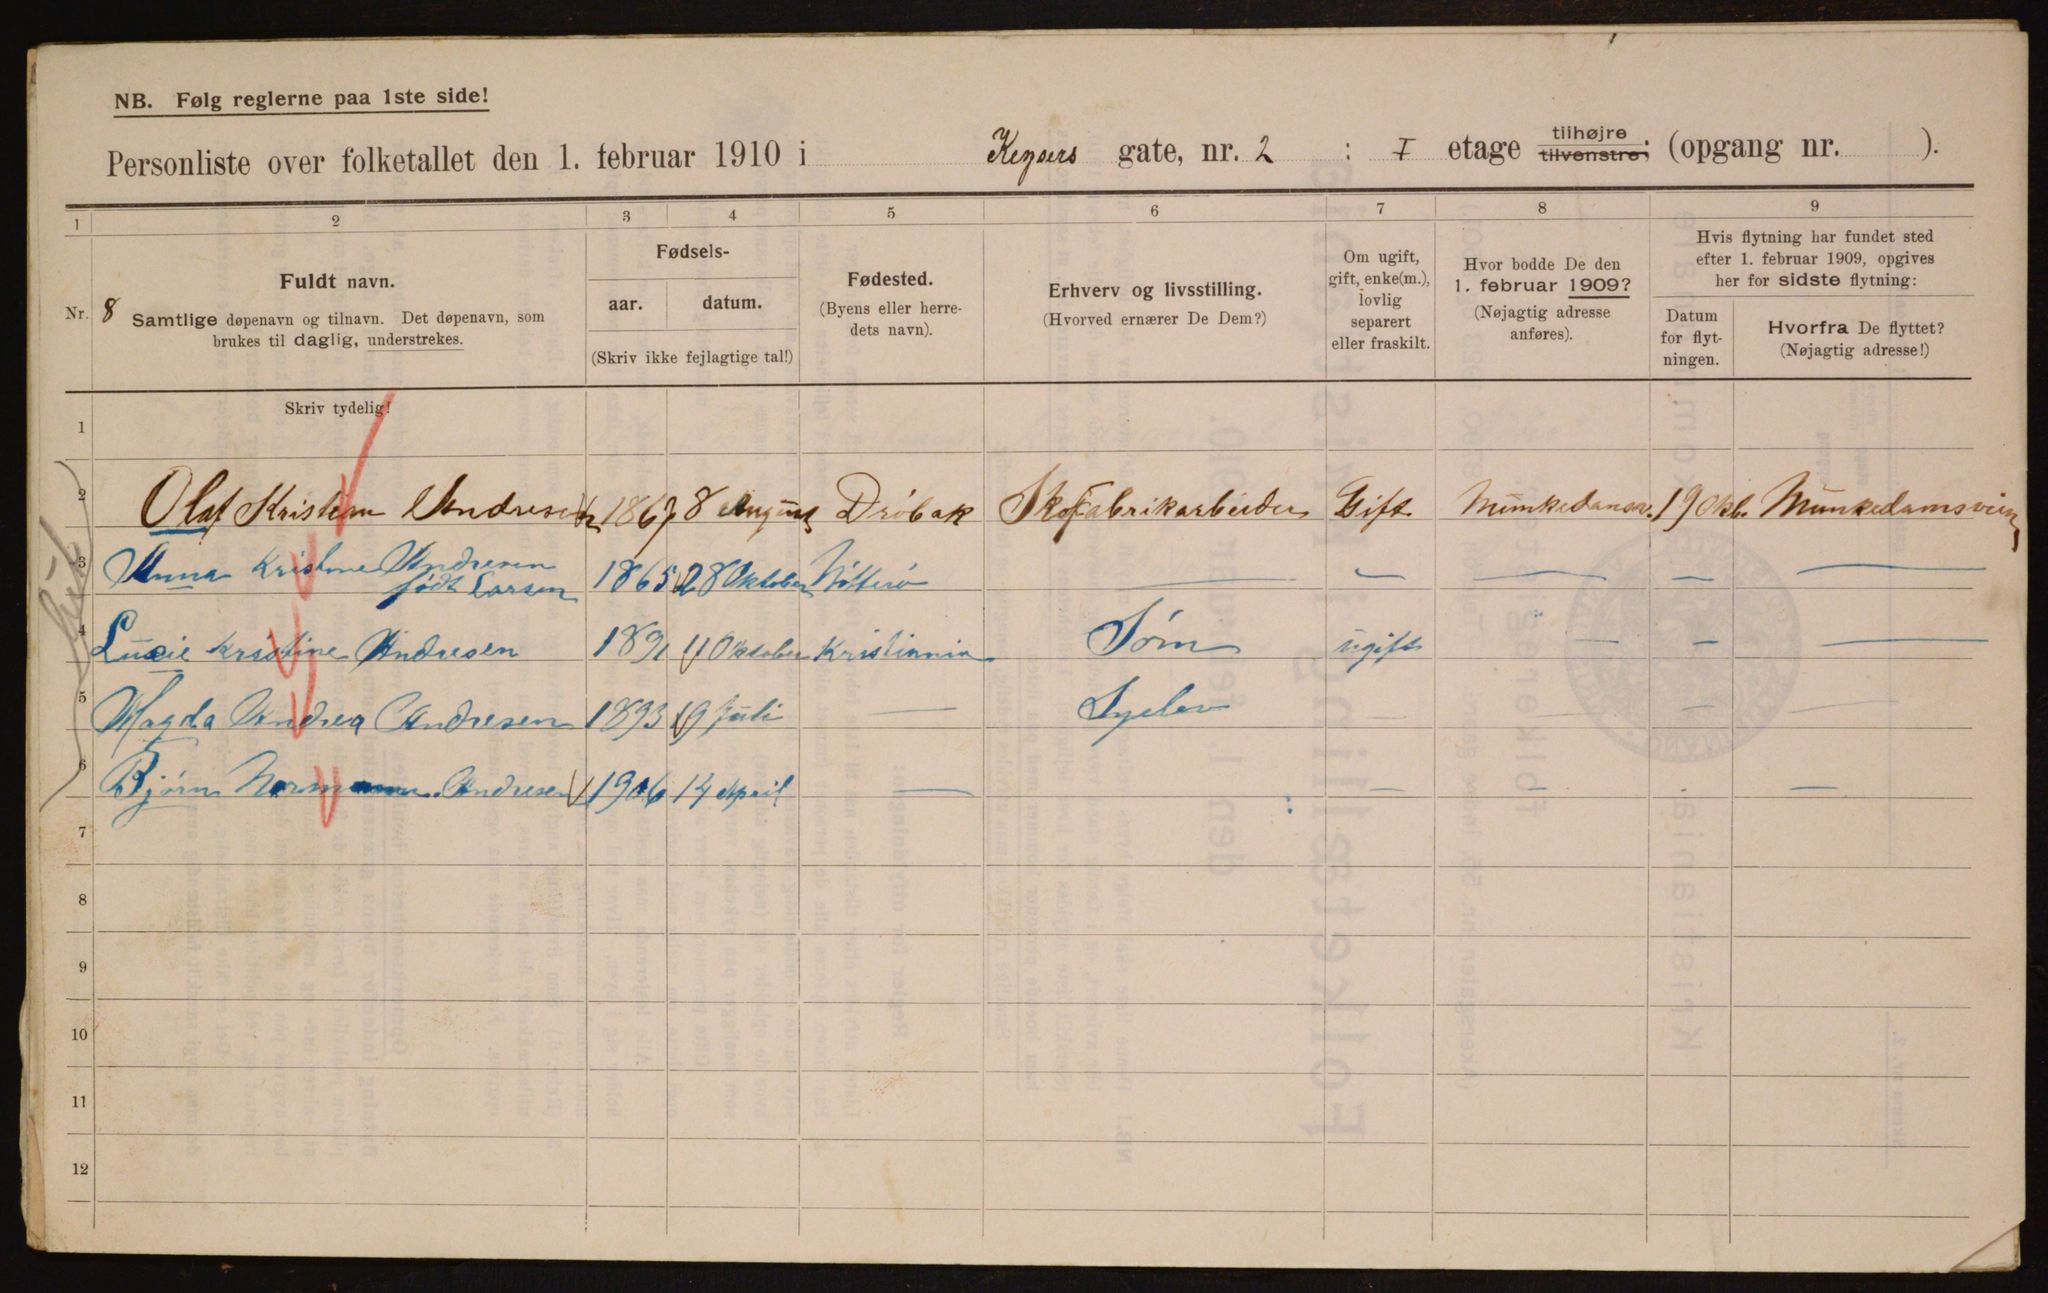 NB. Følg reglerne paa 1ste side!
Personliste over folketallet den 1. februar 1910 i Keysers gate, nr. 2 : I etage tilhøjre tilvenstre; (opgang nr. ).
1 2 3 4 5 6 7 8 9
Nr. 8
Fuldt navn.
Samtlige døpenavn og tilnavn. Det døpenavn, som
brukes til daglig, understrekes.
Fødsels-
aar. datum.
(Skriv ikke fejlagtige tal!)
Fødested.
(Byens eller herre-
dets navn).
Erhverv og livsstilling.
(Hvorved ernærer De Dem?)
Om ugift,
gift, enke(m.),
lovlig
separert
eller fraskilt.
Hvor bodde De den
1. februar 1909?
(Nøjagtig adresse
anføres).
Hvis flytning har fundet sted
efter 1. februar 1909, opgives
her for sidste flytning:
Datum
for flyt-
ningen.
Hvorfra De flyttet?
(Nøjagtig adresse!)
Skriv tydelig!
1
2 Olaf Kristian Andresen 1867 8 August Drøbak Skofabrikarbeider Gift Munkedamsv. 19 Okb. Munkedamsveien
3 Anna Kristine Andresen
født Larsen 1865 28 Oktober Nøtterø — — — — —
4 Lucie Kristine Andresen 1891 11 Oktober Kristiania Søm ugift — — —
5 Magda Andrea Andresen 1893 19 Juli — Syelev — —
6 Bjørn Normann Andresen 1906 14 April — — — — —
7
8
9
10
11
12